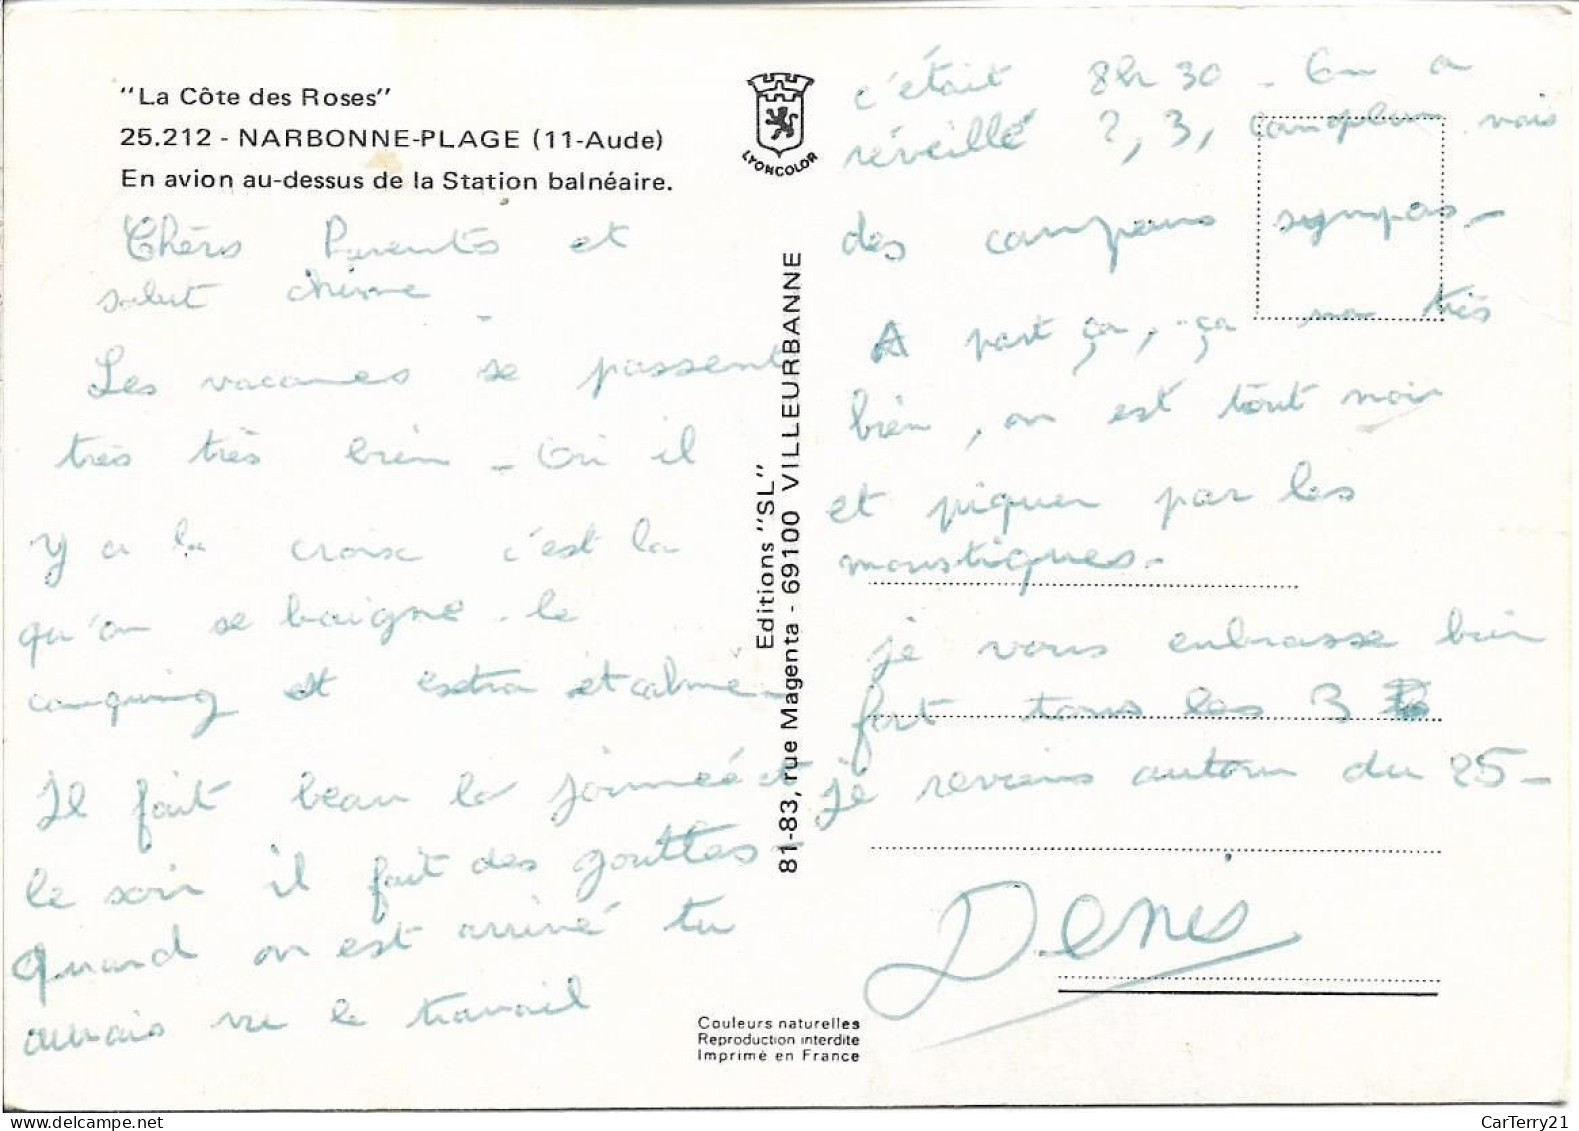 "La Côte des Roses"
25.212 - NARBONNE-PLAGE (11-Aude)
En avion au-dessus de la Station balnéaire.
Chèrs Parents et
salut
Les vacances se passent
très très bien - Où il
y a la croix c'est la
qu'on se baigne. le
camping est extra et calme
Il fait beau la journeé et
le soir il fait des gouttes -
Quand on est arrivé tu
aurais vu le travail
LYONCOLOR
Editions "SL"
81-83, rue Magenta - 69100 VILLEURBANNE
Couleurs naturelles
Reproduction interdite
Imprimé en France
c'était 8h 30 - On a
réveillé 2, 3, mais
des campeurs sympas -
A part ça, ça va très
bien, on est tout noir
et piquer par les
moustiques -
je vous enbrasse bien
fort tous les 3
je reviens autour du 25 -
Denis
CarTerry21